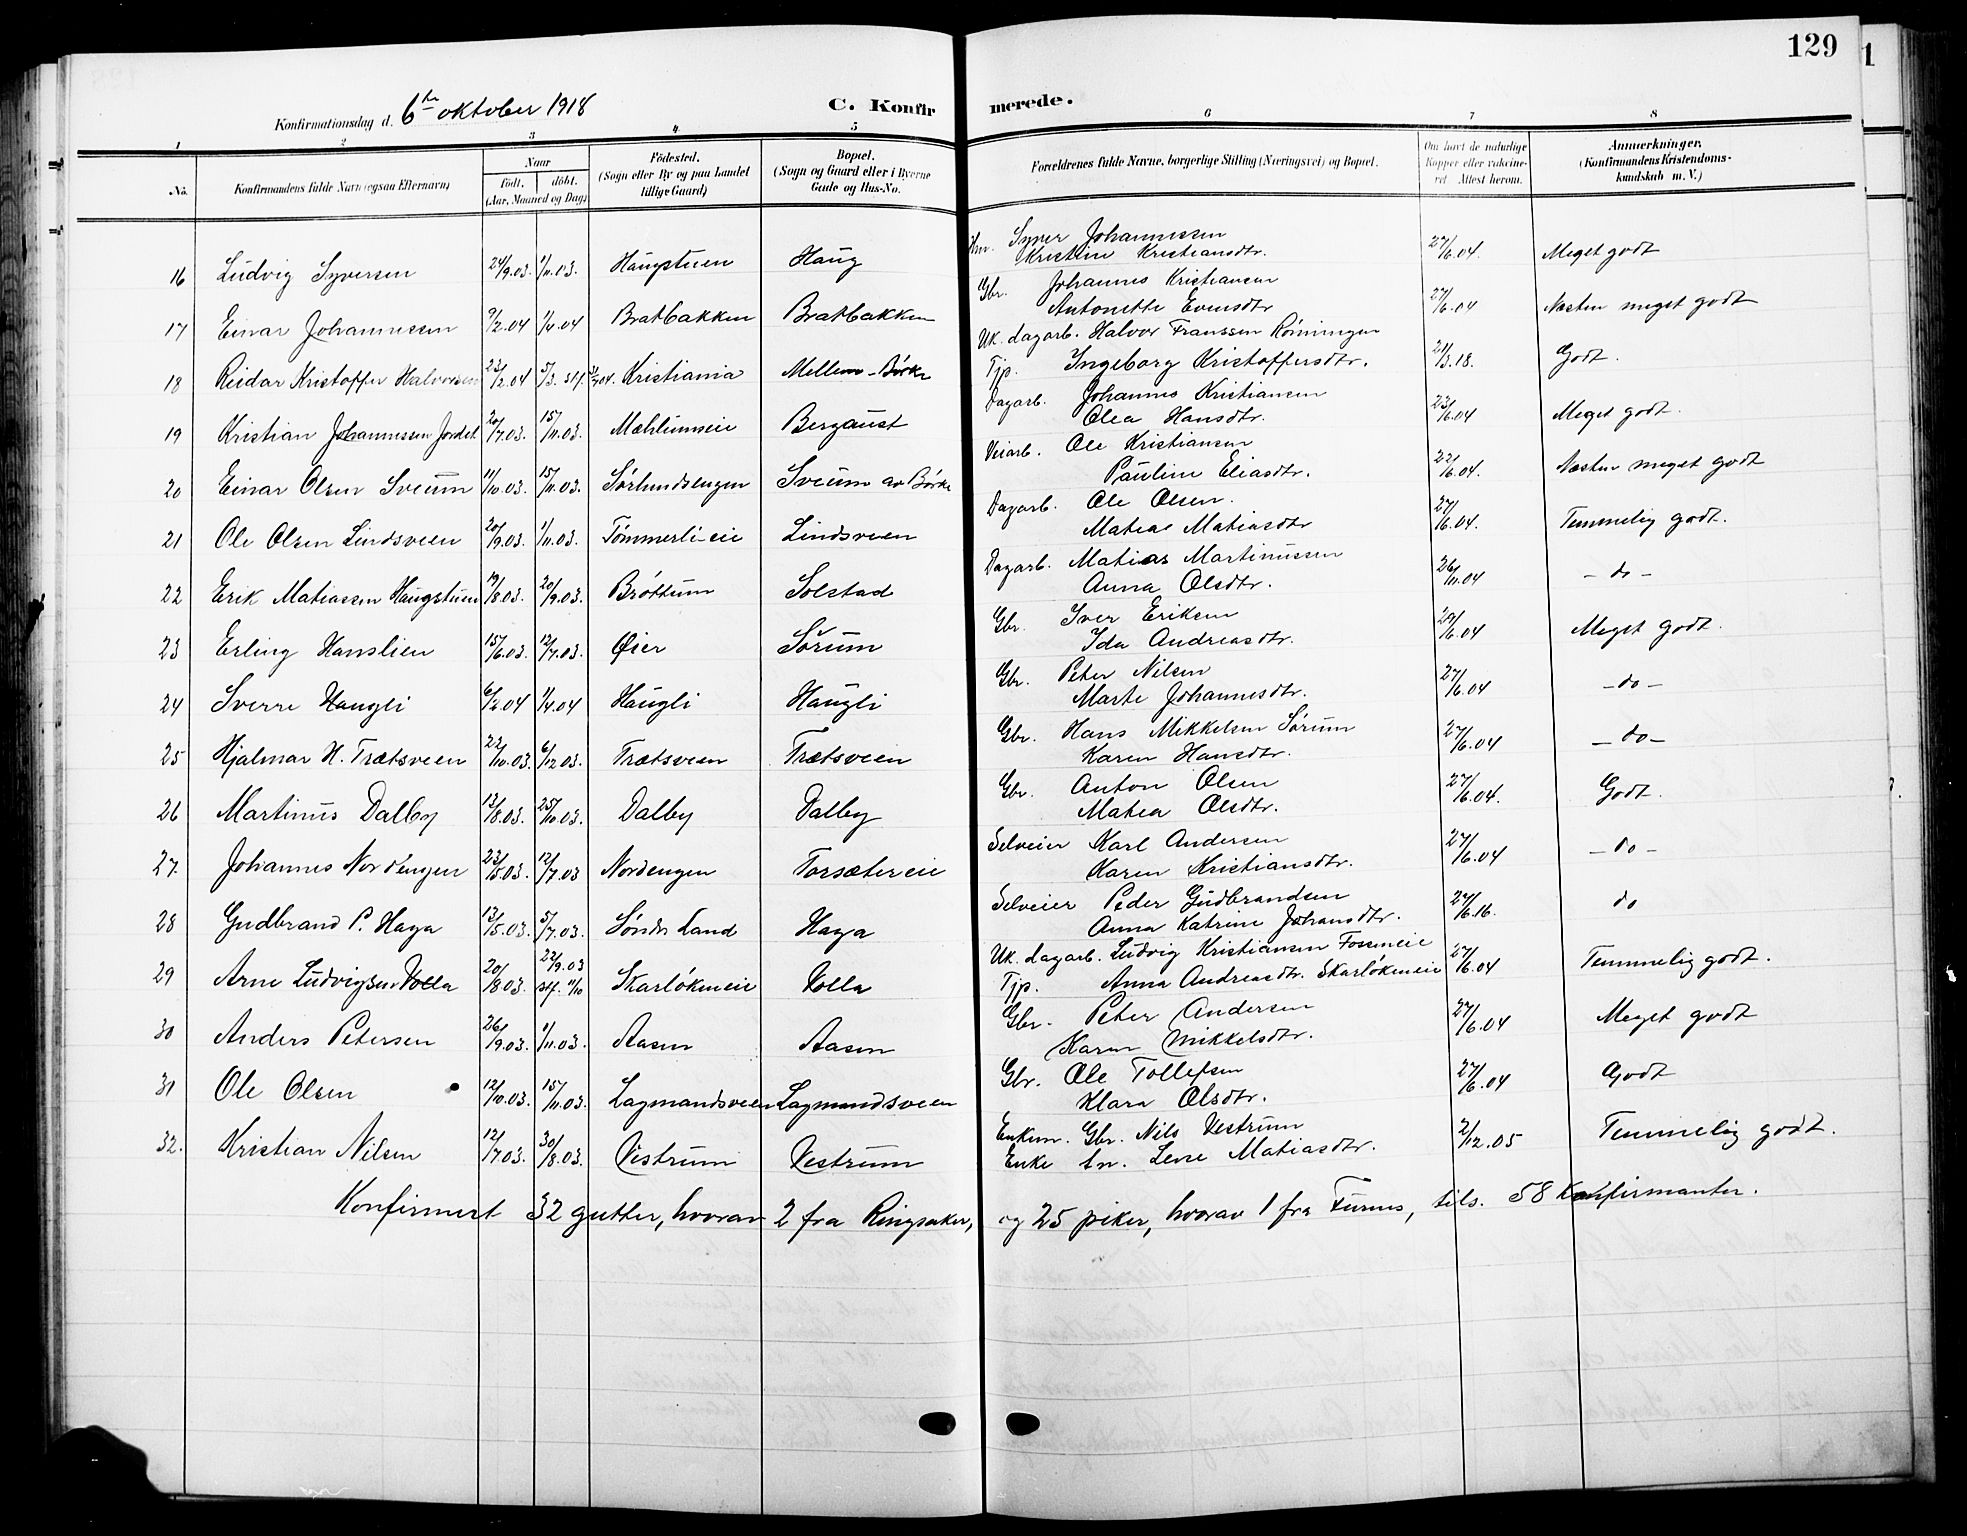 129
Konfirmationsdag d. 6te oktober 1918
C. Konfir
merede.
1 2 3 4 5 6 7 8
No. Konfirmandens fulde Navn (ogsaa Efternavn) Naar født, døbt. (Aar, Maaned og Dag) Fødested. (Sogn eller By og paa Landet tillige Gaard) Bopæl. (Sogn og Gaard eller i Byerne Gade og Hus-No. Forældrenes fulde Navne, borgerlige Stilling (Næringsvei) og Bopæl. Om havt de naturlige Kopper eller vaccineret Attest herom. Anmerkninger. (Konfirmandens Kristendomskundskab m. V.)
16 Ludvig Syversen 24/9.03. 1/11.03. Haugstuen Haug Syver Johannessen Kristine Kristiansdtr. 27/6.04. Meget godt
17 Einar Johannessen 9/2.04 1/4.04 Bratbakken Bratbakken Gbr. Johannes Kristiansen Antonette Evensdtr 27/6.04 Næsten meget godt
18 Reidar Kristoffer Halvorsen 23/2.04 5/3. Kristiania Mellem-Børke Uk. dagarb. Halvor Franssen Rønningen Tjp. Ingeborg Kristoffersdtr. 21/3.18. Godt.
19 Kristian Johannessen Jordet 20/7.03. 15/11.03. Mæhlumseie Bergaust Dagarb. Johannes Kristiansen Olea Hansdtr. 23/6.04 Meget godt.
20 Einar Olsen Sveum 11/10.03. 15/11.03. Sørlundsengen Sveum av Børke Veiarb. Ole Kristiansen Pauline Eliasdtr. 22/6.04. Næsten meget godt
21 Ole Olsen Lindsveen 20/9.03. 1/11.03. Tømmerli-eie Lindsveen Dagarb. Ole Olsen. Matea Matiasdtr 27/6.04. Temmelig godt.
22 Erik Matiassen Haugstuen 19/8.03. 20/9.03. Brøttum Solstad Dagarb. Matias Martinussen Anna Olsdtr. 26/11.04 - do -
23 Erling Hanslien 15/6.03. 12/7.03. Øier Sørum Gbr. Iver Eriksen Ida Andreasdtr. 20/6.04 Meget godt.
24 Sverre Haugli 6/2.04 1/4.04 Haugli Haugli Gbr. Peter Nilsen Marte Johannesdtr. 27/6.04 - do -
25 Hjalmar H. Trætsveen 22/10.03. 6/12.03. Trætsveen Trætsveen Gbr. Hans Mikkelsen Sørum Karen Hansdtr. 27/6.04 - do -
26 Martinus Dalby 12/8.03. 25/10.03. Dalby Dalby Gbr. Anton Olsen Matea Olsdtr. 27/6.04. Godt.
27. Johannes Nordengen 23/5.03. 12/7.03 Nordengen Torsætereie Selveier Karl Andersen Karen Kristiansdtr. 27/6.04 - do -
28 Gudbrand P. Haga 12/5.03. 5/7.03. Søndr. Land Haga Selveier Peder Gudbrandsen Anna Katrine Johansdtr. 24/6.16. do
29 Arne Ludvigsen Volla 20/8.03. 22/9.03 stf. 11/10 Skarløkeneie Volla Uk. dagarb. Ludvig Kristiansen Fosseneie Tjp. Anna Andreasdtr. Skarløkeneie 27/6.04 Temmelig godt.
30 Anders Petersen 26/9.03. 1/11.03. Aasen Aasen Gbr. Peter Andersen Karen Mikkelsdtr. 27/6.04 Meget godt
31 Ole Olsen 12/10.03. 15/11.03. Lagmandsveen Lagmandsveen Gbr. Ole Tollefsen Klara Olsdtr. 27/6.04 Godt
32. Kristian Nilsen 12/7.03. 30/8.03. Vestrum Vestrum Enkem. Gbr. Nils Vestrum Enke Lene Matiasdtr. 2/12.05 Temmelig godt.
Konfirmert 32 gutter, hvorav 2 fra Ringsaker, og 25 piker, hvorav 1 fra Furnes, tils. 58 Konfirmanter.